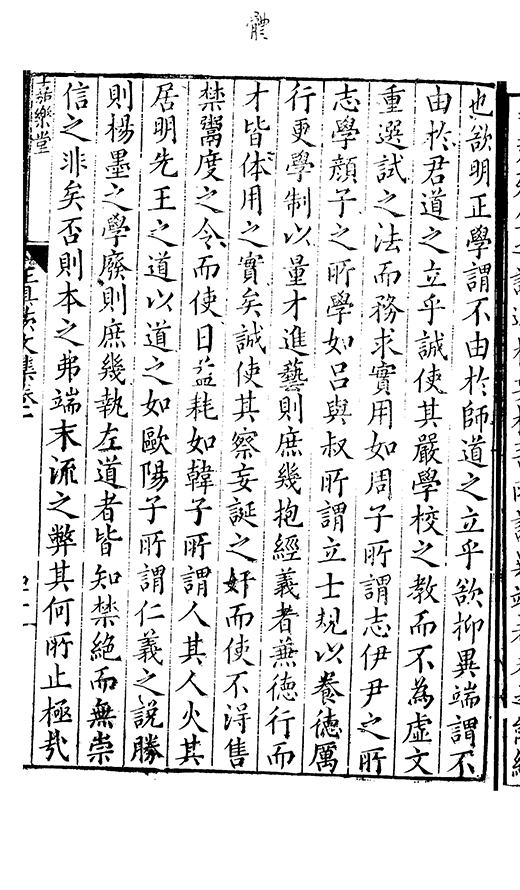 體
也欲明正學謂不由於師道之立乎欲抑異端謂不
由於君道之立乎誠使其嚴學校之教而不為虛文
重選試之法而務求實用如周子所謂志伊尹之所
志學顏子之所學如吕與叔所謂立士規以養德厲
行更學制以量才進藝則庶幾抱經義者兼德行而
才皆体用之實矣誠使其察妄誕之奸而使不得售
禁鬻度之令而使日益耗如韓子所謂人其人火其
居明先王之道以道之如歐陽子所謂仁義之說勝
則楊墨之學廢則庶幾執左道者皆知禁絶而無崇
信之非矣否則本之弗端末流之弊其何所止極㢤
嘉樂堂
文集卷二